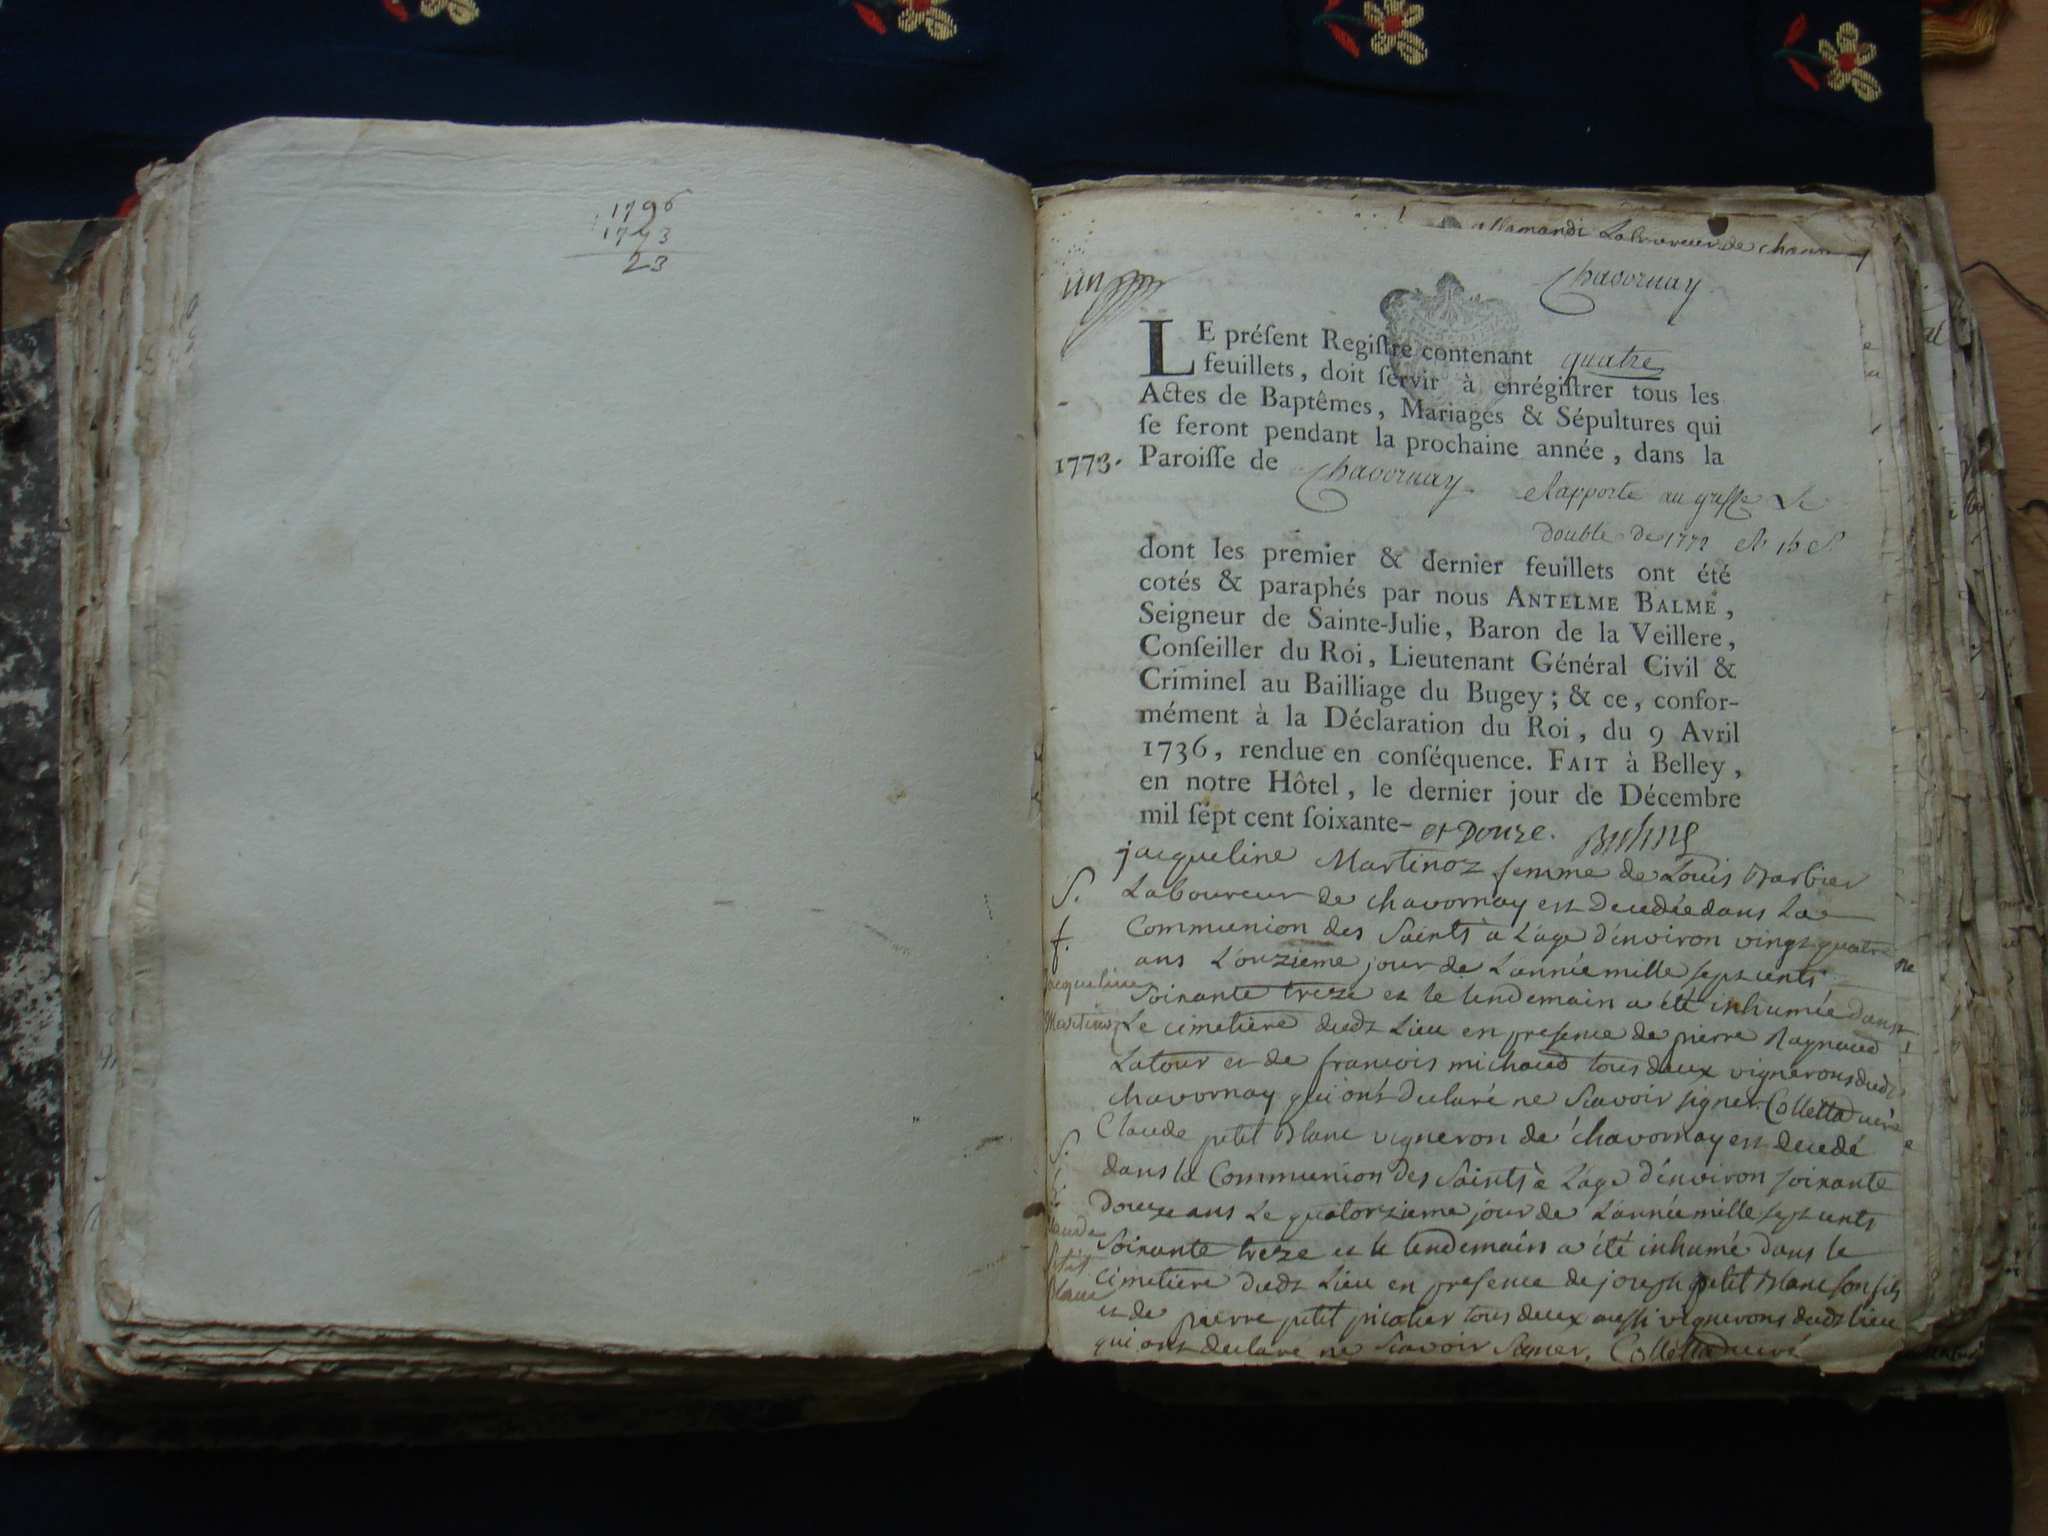 1796
1773
23
allamandi Laboureur de chavor
un
Chavornay
LE préſent Regiſtre contenant quatre
feuillets, doit ſervir à enrégiſtrer tous les
Actes de Baptêmes, Mariages & Sépultures qui
ſe feront pendant la prochaine année, dans la
1773. Paroiſſe de Chavornay
et apporté au greffe Le
double de 1772
dont les premier & dernier feuillets ont été
cotés & paraphés par nous ANTELME BALME,
Seigneur de Sainte-Julie, Baron de la Veillere,
Conſeiller du Roi, Lieutenant Général Civil &
Criminel au Bailliage du Bugey; & ce, confor-
mément à la Déclaration du Roi, du 9 Avril
1736, rendue en conſéquence. FAIT à Belley,
en notre Hôtel, le dernier jour de Décembre
mil ſept cent ſoixante- et Douze. Balme
jacqueline Martinoz femme de Louis Barbier
S. Laboureur de chavornay est decedée dans La
f. Communion des Saints a L'age d'environ vingt quatre
ans L'onzieme jour de L'année mille sept cents
jacqueline soixante treze et le lendemain a été inhumée dans
Martinoz Le cimetière dudt Lieu en presence de pierre Raynaud
Latour et de francois michaud tous deux vignerons dudt
chavornay qui ont declaré ne Scavoir signer. Colletta curé
Claude petit Blanc vigneron de chavornay est decedé
S. dans la Communion des Saints à L'age d'environ soixante
Douze ans Le quatorzieme jour de L'année mille sept cents
Claude soixante treze et le lendemain a été inhumé dans le
petit cimetiere dudt Lieu en presence de joseph petit Blanc son fils
Blanc et de pierre petit picolier tous deux aussi vignerons dudt lieu
qui ont declaré ne Scavoir Signer. Colletta curé